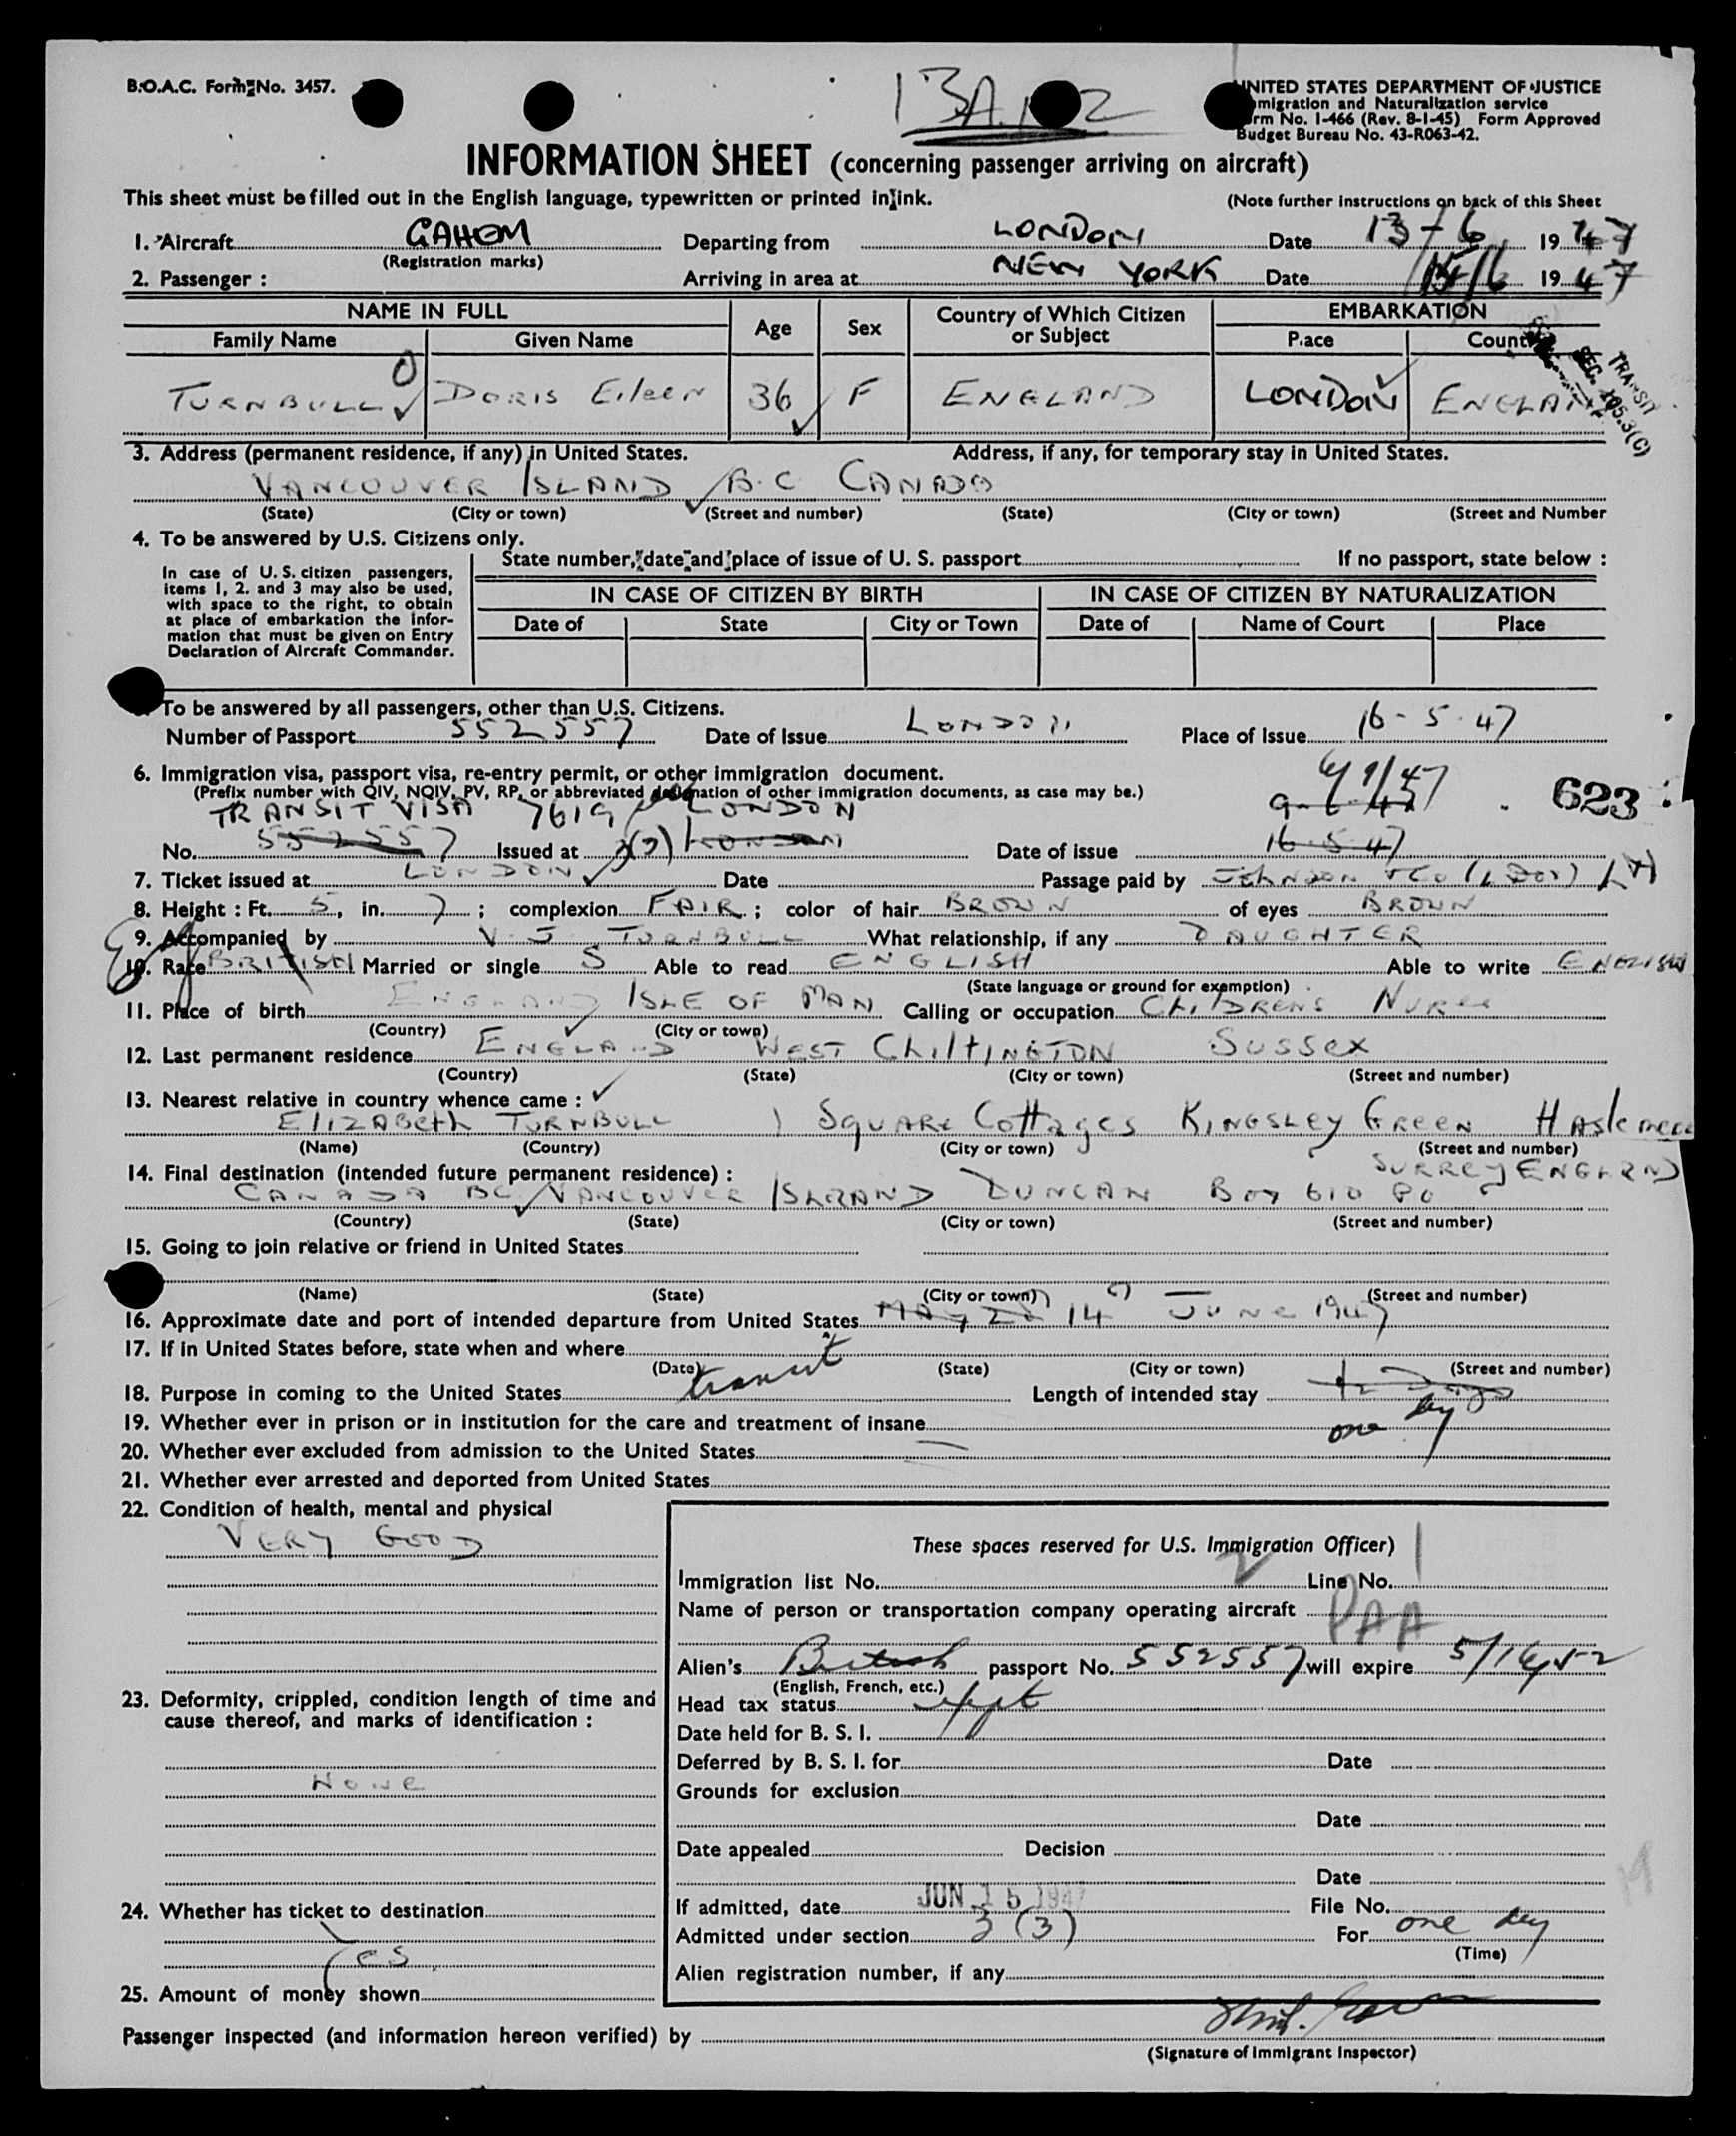 B.O.A.C. Form No. 3457.
UNITED STATES DEPARTMENT OF JUSTICE
Immigration and Naturalization service
Form No. I-466 (Rev. 8-1-45) Form Approved
Budget Bureau No. 43-R063-42.
INFORMATION SHEET (concerning passenger arriving on aircraft)
This sheet must be filled out in the English language, typewritten or printed in ink. (Note further instructions on back of this Sheet
1. Aircraft GAHEM Departing from LONDON Date 13-6 1947
(Registration marks)
2. Passenger : Arriving in area at NEW YORK Date 15/6 1947
NAME IN FULL Age Sex Country of Which Citizen or Subject EMBARKATION
Family Name Given Name Place Country
TURNBULL DORIS EILEEN 36 F ENGLAND LONDON ENGLAND
TRANSIT
SEC. 105.3(C)
3. Address (permanent residence, if any) in United States. Address, if any, for temporary stay in United States.
VANCOUVER ISLAND B.C CANADA
(State) (City or town) (Street and number) (State) (City or town) (Street and Number
4. To be answered by U.S. Citizens only.
State number, date and place of issue of U. S. passport If no passport, state below :
In case of U. S. citizen passengers,
items 1, 2. and 3 may also be used,
with space to the right, to obtain
at place of embarkation the infor-
mation that must be given on Entry
Declaration of Aircraft Commander.
IN CASE OF CITIZEN BY BIRTH IN CASE OF CITIZEN BY NATURALIZATION
Date of State City or Town Date of Name of Court Place
To be answered by all passengers, other than U.S. Citizens.
Number of Passport 552557 Date of Issue LONDON Place of Issue 16-5-47
6. Immigration visa, passport visa, re-entry permit, or other immigration document.
(Prefix number with QIV, NQIV, PV, RP, or abbreviated designation of other immigration documents, as case may be.)
TRANSIT VISA 7619 LONDON 9-6-47 623
No. 552557 Issued at 3(3) LONDON Date of issue 16-5-47
7. Ticket issued at LONDON Date Passage paid by
8. Height : Ft. 5, in. 7 ; complexion FAIR ; color of hair BROWN of eyes BROWN
9. Accompanied by V. J TURNBULL What relationship, if any DAUGHTER
10. Race BRITISH Married or single S Able to read ENGLISH Able to write ENGLISH
(State language or ground for exemption)
11. Place of birth ENGLAND ISLE OF MAN Calling or occupation CHILDRENS NURSE
(Country) (City or town)
12. Last permanent residence ENGLAND WEST CHILTINGTON SUSSEX
(Country) (State) (City or town) (Street and number)
13. Nearest relative in country whence came :
ELIZABETH TURNBULL 1 SQUARE COTTAGES KINGSLEY GREEN HASLEMERE
(Name) (Country) (City or town) (Street and number)
SURREY ENGLAND
14. Final destination (intended future permanent residence) :
CANADA BC VANCOUVER ISLAND DUNCAN BOX 610 PO
(Country) (State) (City or town) (Street and number)
15. Going to join relative or friend in United States
(Name) (State) (City or town) (Street and number)
16. Approximate date and port of intended departure from United States MAY 20 14 JUNE 1947
17. If in United States before, state when and where
(Date) (State) (City or town) (Street and number)
18. Purpose in coming to the United States transit Length of intended stay one day
19. Whether ever in prison or in institution for the care and treatment of insane
20. Whether ever excluded from admission to the United States
21. Whether ever arrested and deported from United States
22. Condition of health, mental and physical
VERY GOOD
23. Deformity, crippled, condition length of time and
cause thereof, and marks of identification :
NONE
24. Whether has ticket to destination
YES
25. Amount of money shown
These spaces reserved for U.S. Immigration Officer)
Immigration list No. 2 Line No. 1
Name of person or transportation company operating aircraft PAA
Alien's British passport No. 552557 will expire 5/16/52
(English, French, etc.)
Head tax status expt
Date held for B. S. I.
Deferred by B. S. I. for Date
Grounds for exclusion
Date
Date appealed Decision
Date
If admitted, date JUN 15 1947 File No.
Admitted under section 3 (3) For one day
(Time)
Alien registration number, if any
Passenger inspected (and information hereon verified) by
(Signature of Immigrant Inspector)